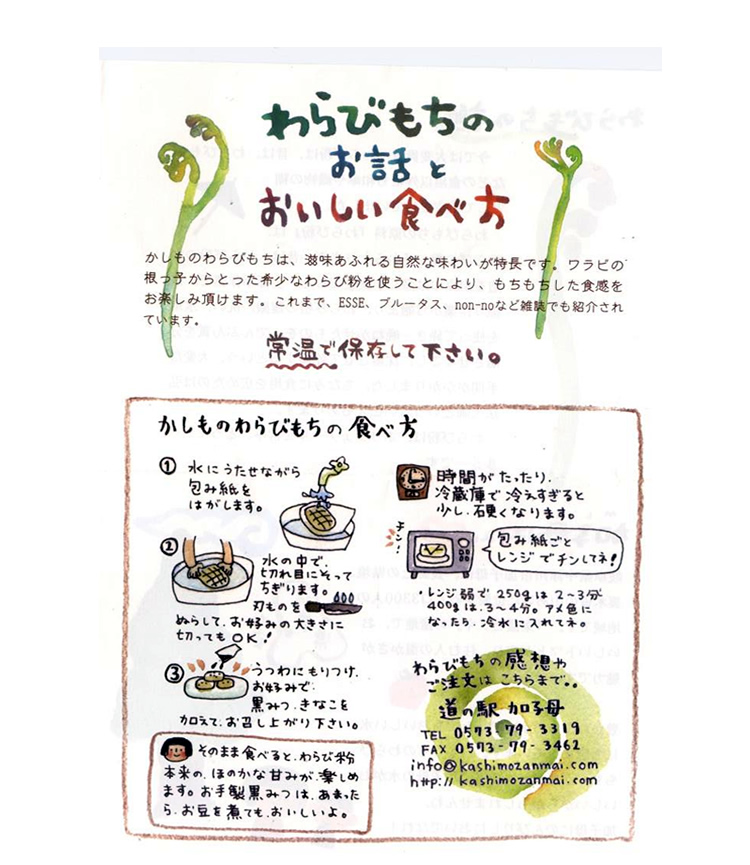 わらびもちの
お話と
おいしい食べ方
かしものわらびもちは、滋味あふれる自然な味わいが特長です。ワラビの
根っ子からとった希少なわらび粉を使うことにより、もちもちした食感を
お楽しみ頂けます。これまで、ESSE、ブルータス、non-noなど雑誌でも紹介され
ています。
常温で保存して下さい。
かしものわらびもちの食べ方
① 水にうたせながら
包み紙を
はがします。
② 水の中で、
切れ目にそって
ちぎります。
刃ものを
ぬらして、お好みの大きさに
切ってもOK!
③ うつわにもりつけ、
お好みで
黒みつ、きなこを
加えて、お召し上がり下さい。
そのまま食べると、わらび粉
本来の、ほのかな甘みが、楽しめ
ます。お手製黒みつは、あまった
ら、お豆を煮ても、おいしいよ。
時間がたったり、
冷蔵庫で冷えすぎると
少し、硬くなります。
チン!
包み紙ごと
レンジでチンしてネ!
・レンジ弱で250gは2〜3分
400gは、3〜4分。アメ色に
なったら、冷水に入れてネ。
わらびもちの感想や
ご注文はこちらまで。。
道の駅 加子母
TEL 0573-79-3319
FAX 0573-79-3462
info@kashimozanmai.com
http://kashimozanmai.com